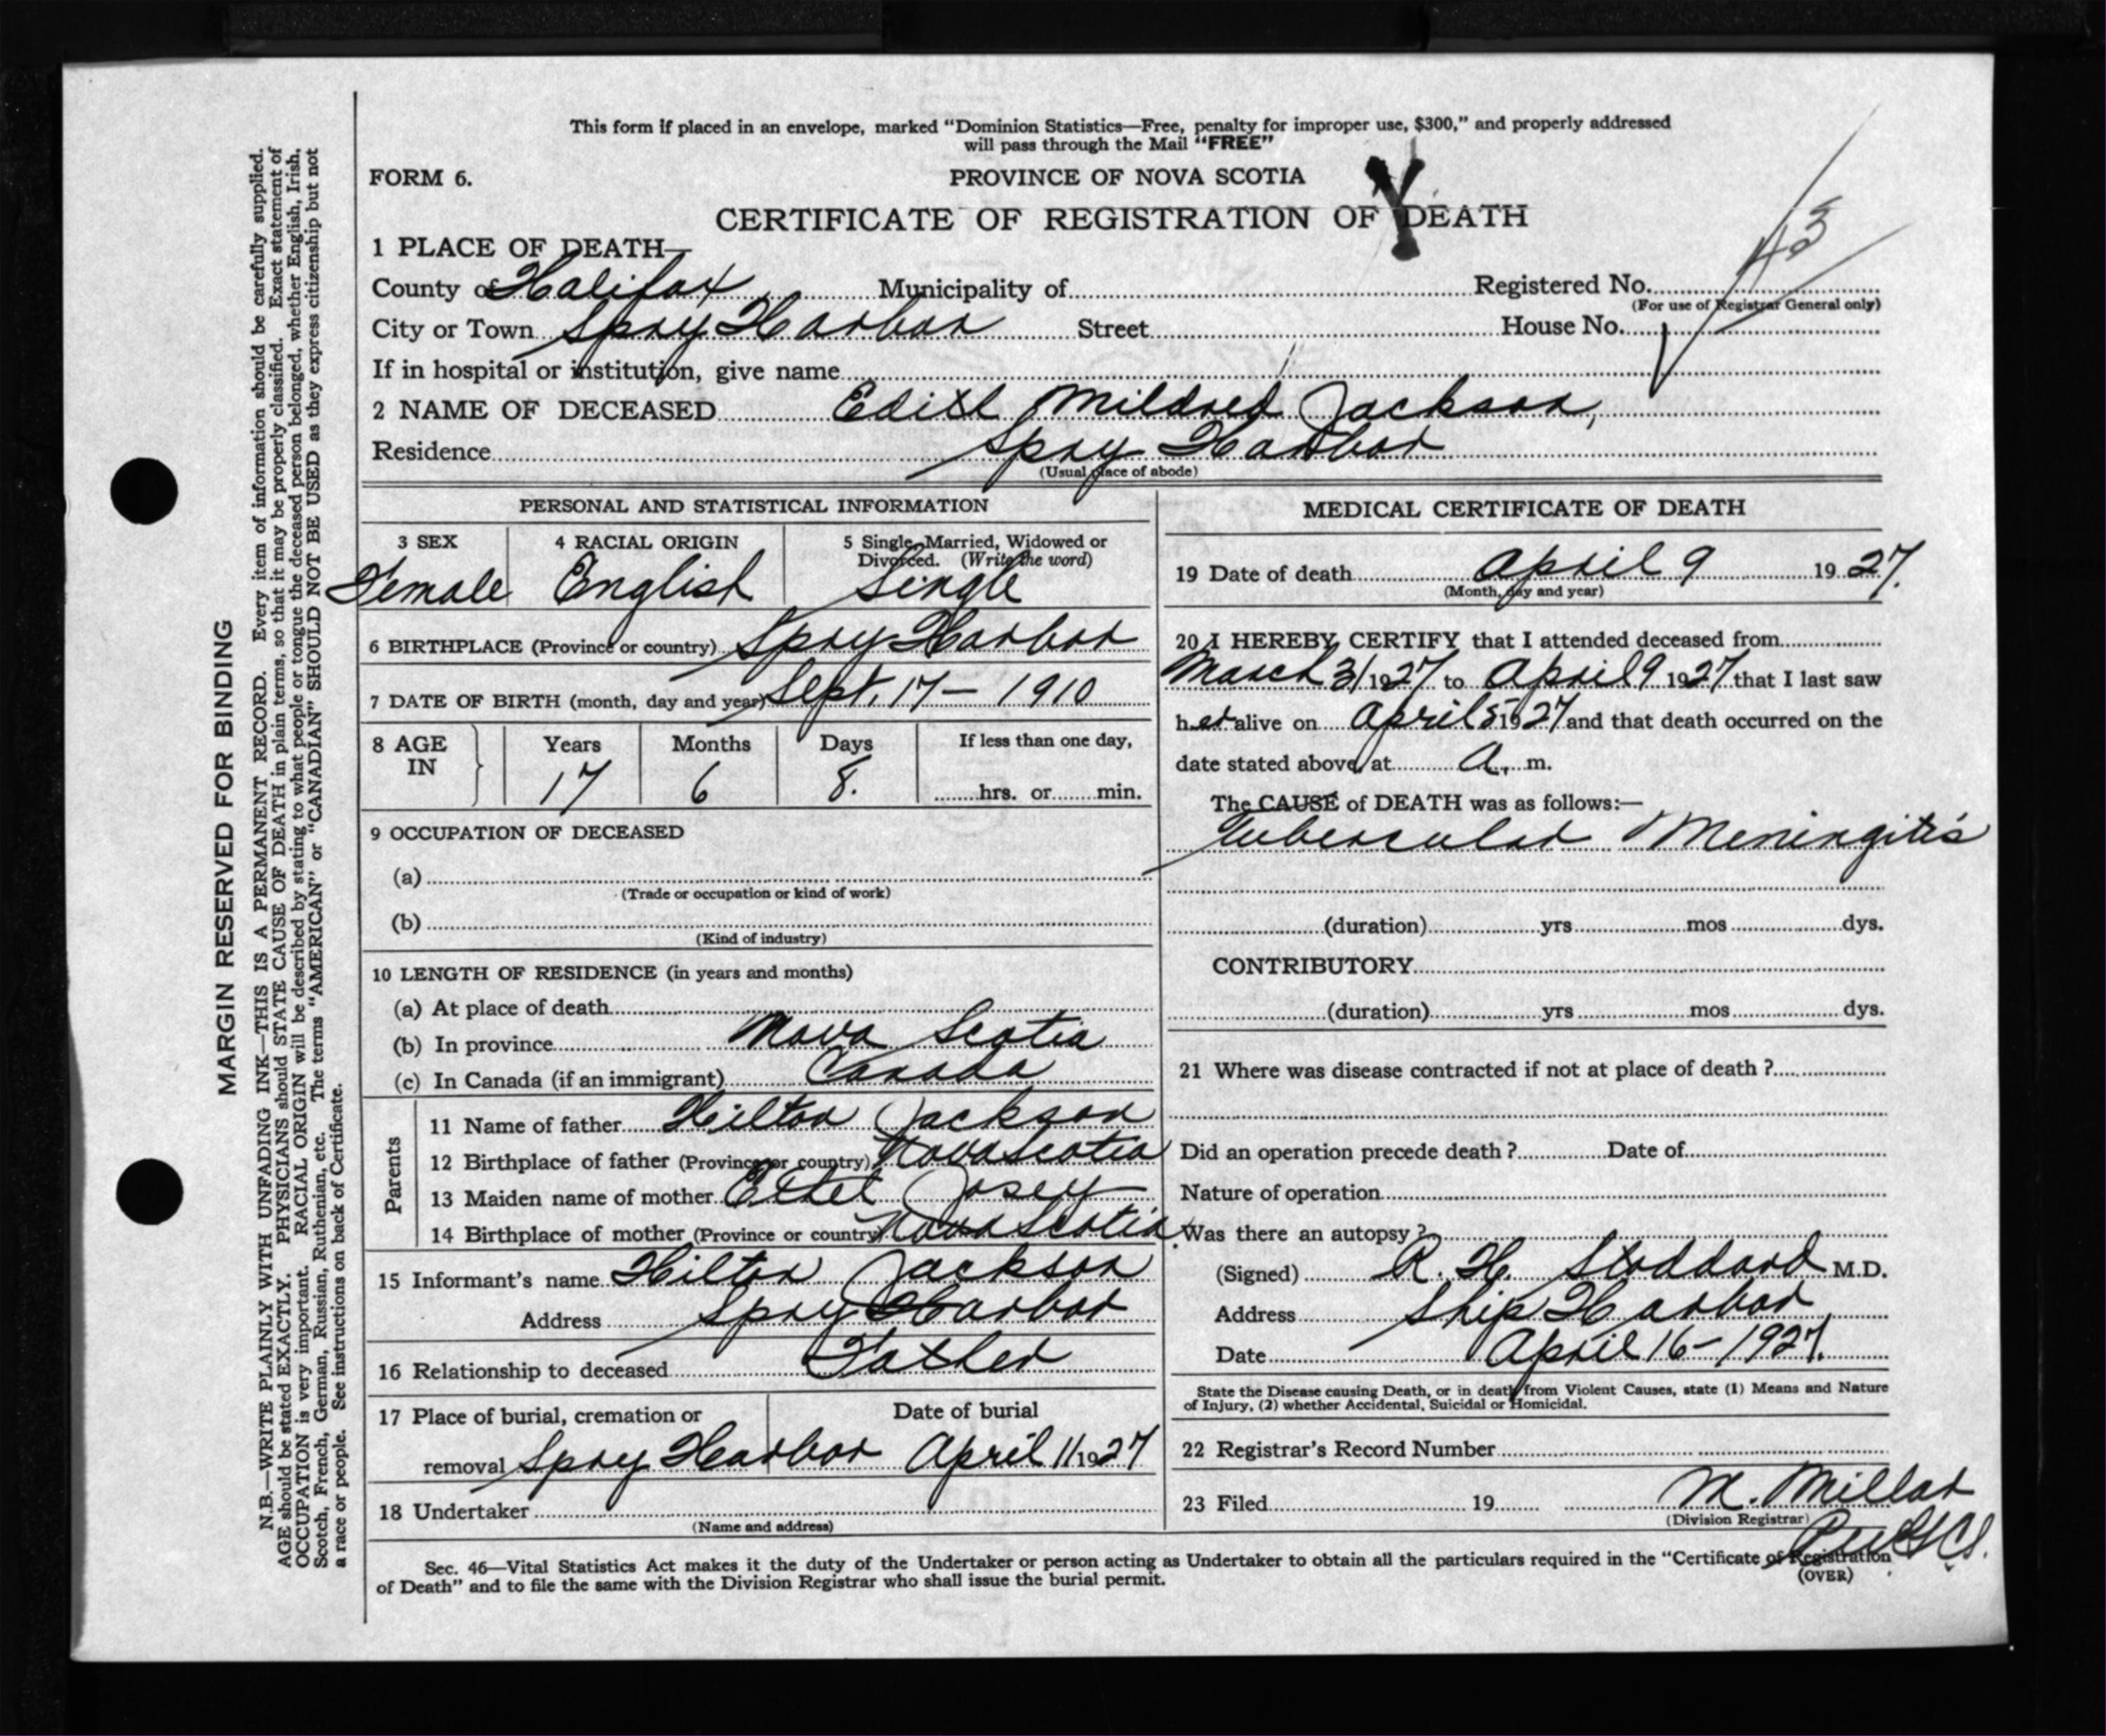 This form if placed in an envelope, marked “Dominion Statistics—Free, penalty for improper use, $300,” and properly addressed
will pass through the Mail “FREE”
FORM 6.
PROVINCE OF NOVA SCOTIA
CERTIFICATE OF REGISTRATION OF DEATH
1 PLACE OF DEATH—
County of Halifax Municipality of Registered No. 43
(For use of Registrar General only)
City or Town Spry Harbor Street House No.
If in hospital or institution, give name
2 NAME OF DECEASED Edith Mildred Jackson,
Residence Spry Harbor
(Usual place of abode)
PERSONAL AND STATISTICAL INFORMATION
3 SEX 4 RACIAL ORIGIN 5 Single, Married, Widowed or
Divorced. (Write the word)
Female English Single
6 BIRTHPLACE (Province or country) Spry Harbor
7 DATE OF BIRTH (month, day and year) Sept. 17 – 1910
8 AGE IN Years Months Days If less than one day,
17 6 8. hrs. or min.
9 OCCUPATION OF DECEASED
(a)
(Trade or occupation or kind of work)
(b)
(Kind of industry)
10 LENGTH OF RESIDENCE (in years and months)
(a) At place of death
(b) In province Nova Scotia
(c) In Canada (if an immigrant) Canada
Parents
11 Name of father Hilton Jackson
12 Birthplace of father (Province or country) Nova Scotia
13 Maiden name of mother Ethel Josey
14 Birthplace of mother (Province or country) Nova Scotia
15 Informant's name Hilton Jackson
Address Spry Harbor
16 Relationship to deceased Father
17 Place of burial, cremation or Date of burial
removal Spry Harbor April 11 1927
18 Undertaker
(Name and address)
MEDICAL CERTIFICATE OF DEATH
19 Date of death April 9 1927.
(Month, day and year)
20 I HEREBY CERTIFY that I attended deceased from
March 31 1927 to April 9 1927 that I last saw
her alive on April 5 1927 and that death occurred on the
date stated above, at A. m.
The CAUSE of DEATH was as follows:—
Tubercular Meningitis
(duration) yrs mos dys.
CONTRIBUTORY
(duration) yrs mos dys.
21 Where was disease contracted if not at place of death ?
Did an operation precede death ? Date of
Nature of operation
Was there an autopsy ?
(Signed) R. H. Stoddard M.D.
Address Ship Harbor
Date April 16 – 1927.
State the Disease causing Death, or in death from Violent Causes, state (1) Means and Nature
of Injury, (2) whether Accidental, Suicidal or Homicidal.
22 Registrar's Record Number
23 Filed 19 M. Millar
(Division Registrar)
Sec. 46—Vital Statistics Act makes it the duty of the Undertaker or person acting as Undertaker to obtain all the particulars required in the “Certificate of Registration
of Death” and to file the same with the Division Registrar who shall issue the burial permit.
(OVER)
MARGIN RESERVED FOR BINDING
N.B.—WRITE PLAINLY WITH UNFADING INK—THIS IS A PERMANENT RECORD. Every item of information should be carefully supplied.
AGE should be stated EXACTLY. PHYSICIANS should STATE CAUSE OF DEATH in plain terms, so that it may be properly classified. Exact statement of
OCCUPATION is very important. RACIAL ORIGIN will be described by stating to what people or tongue the deceased person belonged, whether English, Irish,
Scotch, French, German, Russian, Ruthenian, etc. The terms “AMERICAN” or “CANADIAN” SHOULD NOT BE USED as they express citizenship but not
a race or people. See instructions on back of Certificate.